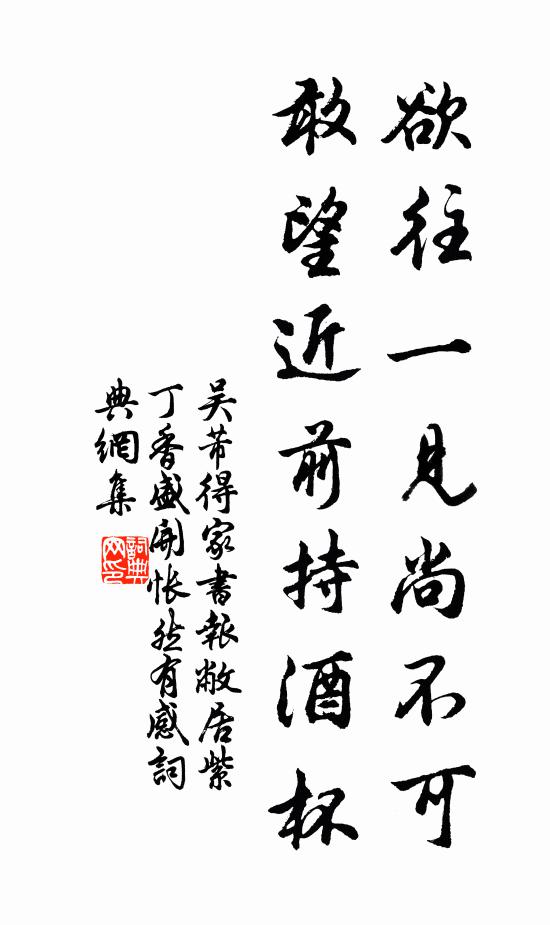 欲往一見尚不可
敢望近前持酒杯
吴芾得家書報敝居紫
丁香盛開悵然有感詞
典網集
詞典
网印